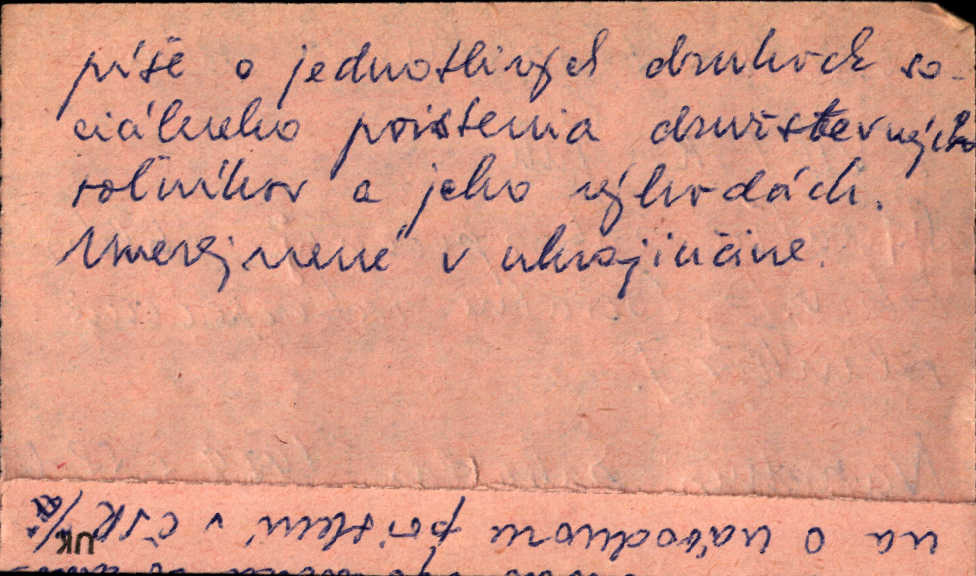 píše o jednotlivých druhoch so-
ciálneho poistenia družstevných
roľníkov a jeho výhodách.
Uverejnené v ukrajinčine.
na o národnom poistení v ČSR/
UK